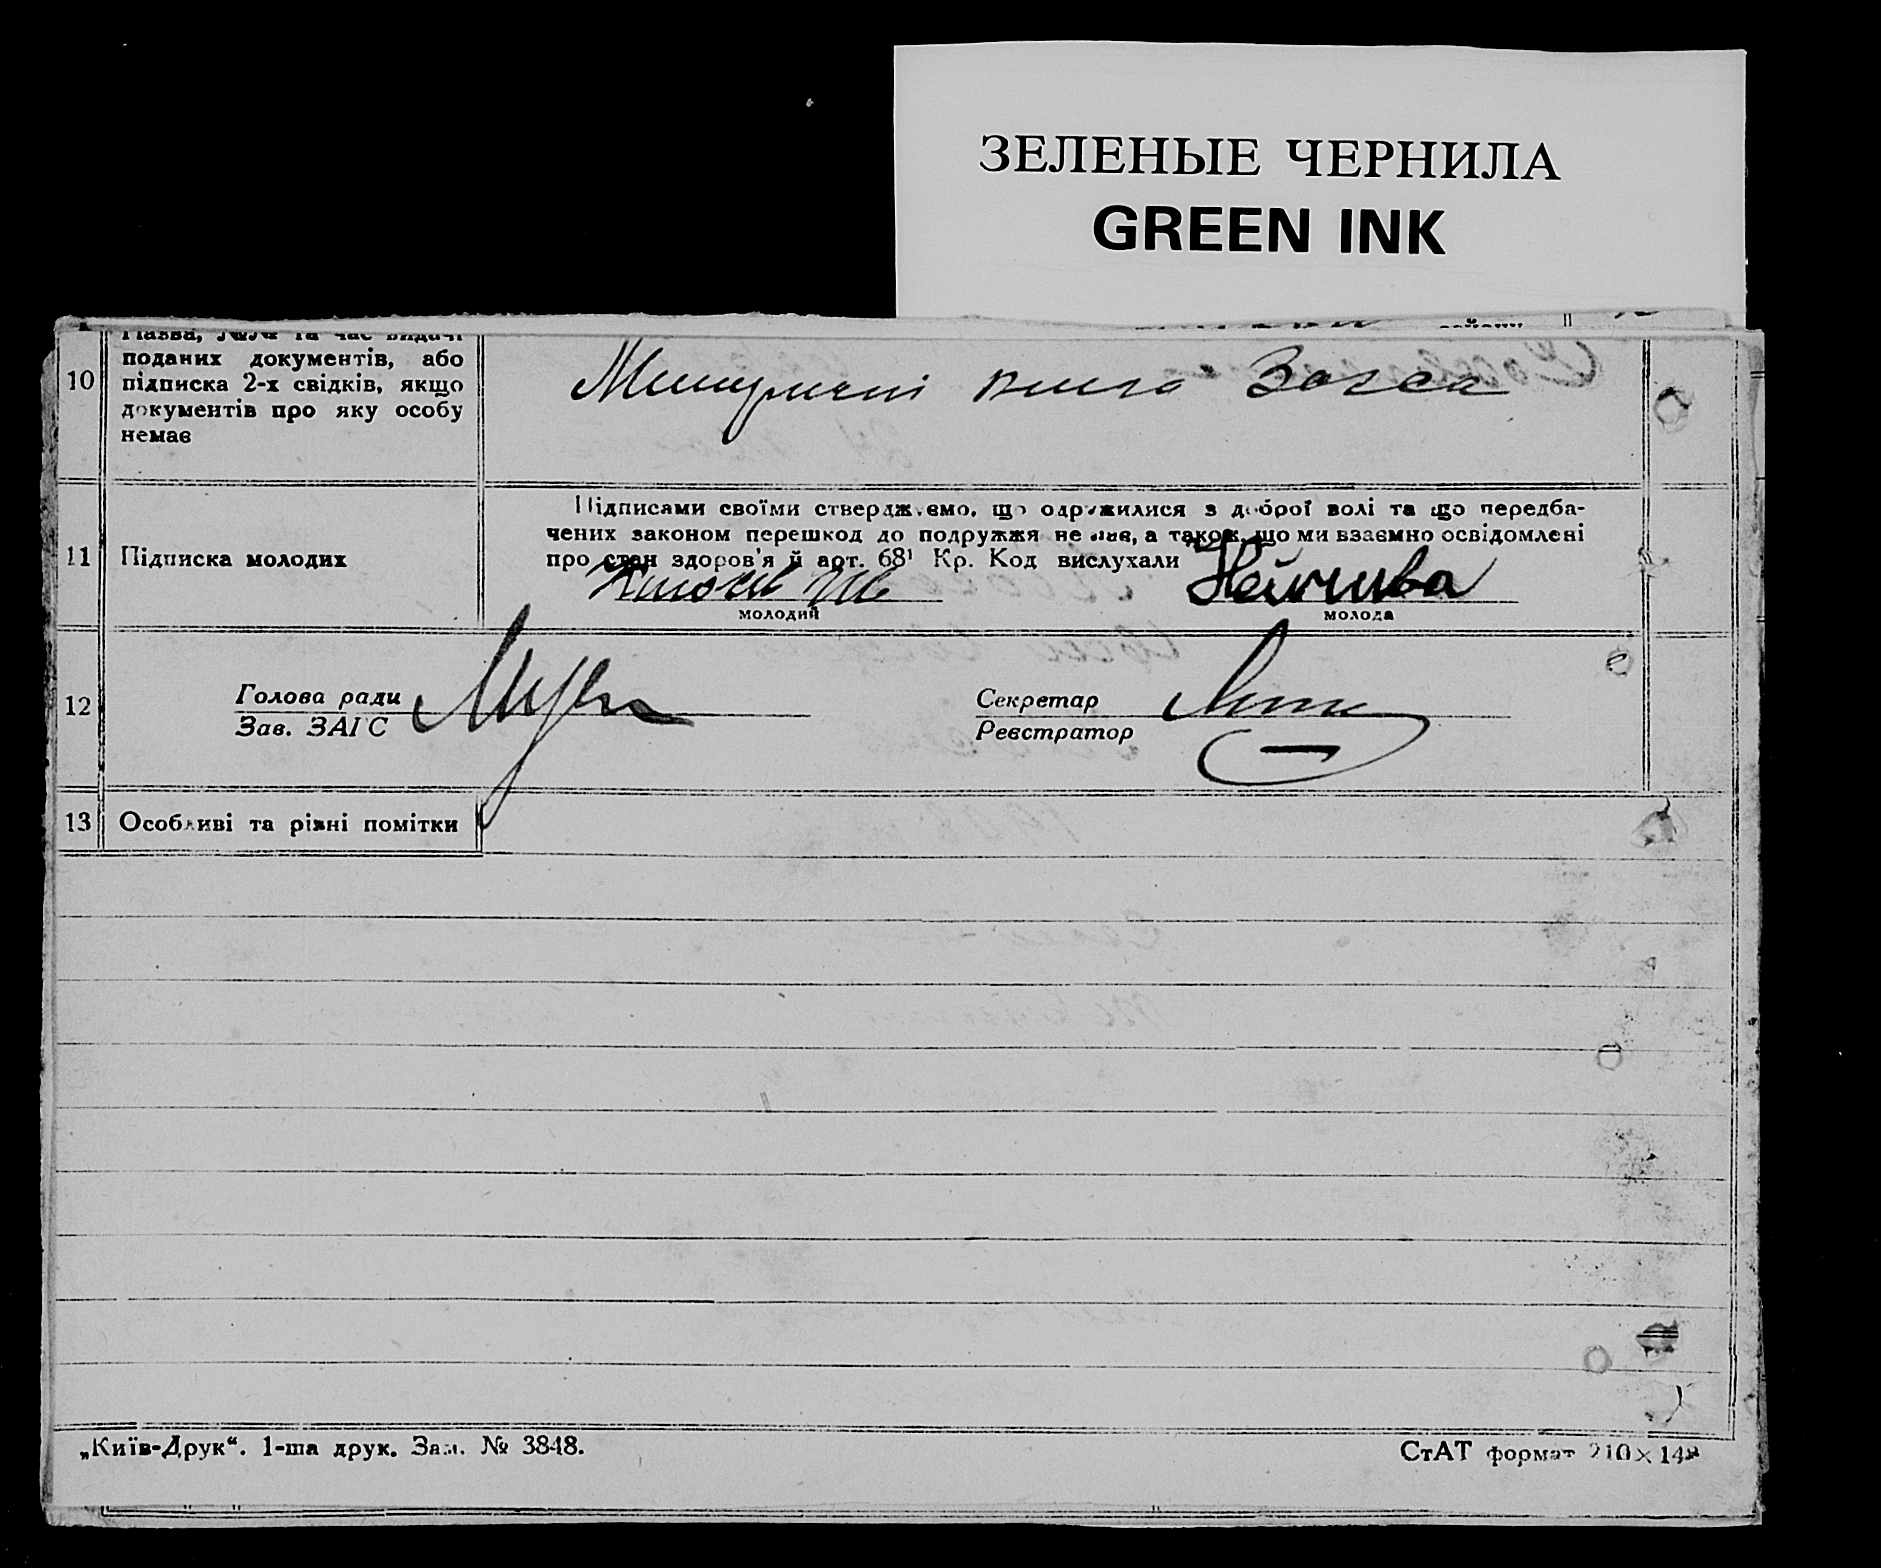 ЗЕЛЕНЫЕ ЧЕРНИЛА
GREEN INK
10
Назва, №№ та час видачі
поданих документів, або
підписка 2-х свідків, якщо
документів про яку особу
немає
Загса
11
Підписка молодих
Підписами своїми стверджуємо, що одружилися з доброї волі та що передба-
чених законом перешкод до подружжя не має, а також, що ми взаємно освідомлені
про стан здоров'я й арт. 68¹ Кр. Код вислухали
молодий
молода
12
Голова ради
Зав. ЗАГС
Секретар
Реєстратор
13
Особливі та різні помітки
„Київ-Друк“. 1-ша друк. Зам. № 3848.
СтАТ формат 210×148